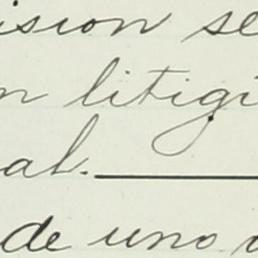 ision se
n litigi
al.
de uno